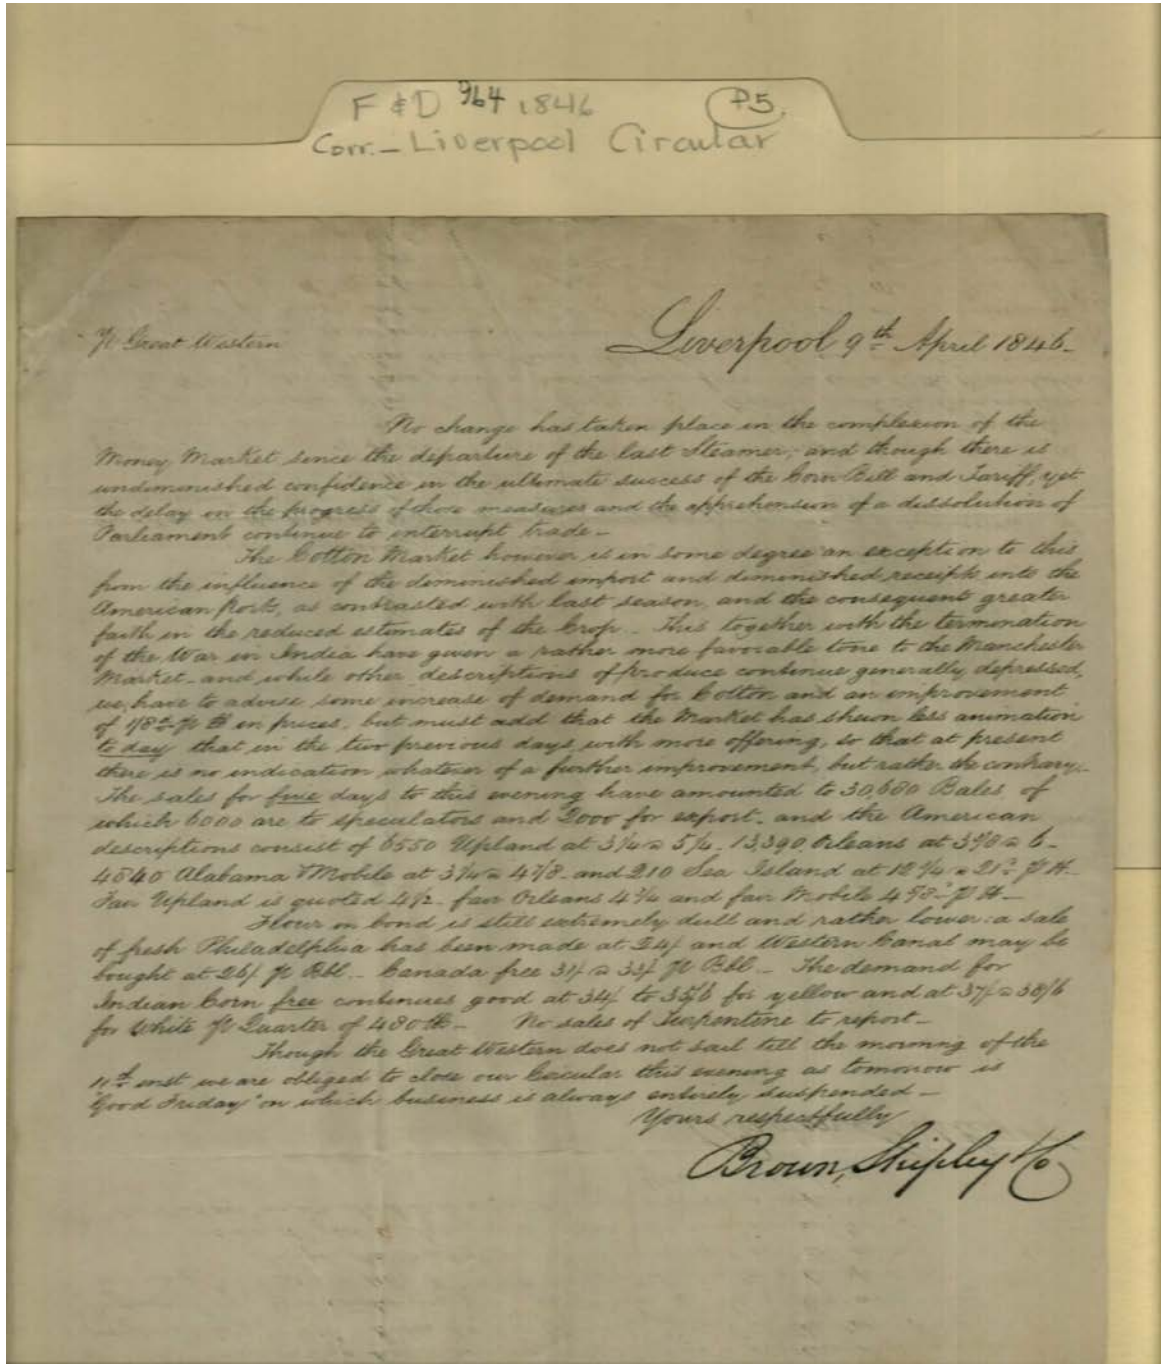 F & D 964 1846 P5.
Corr. - Liverpool Circular
Pr Great Western
Liverpool 9th April 1846.
No change has taken place in the complexion of the
Money Market since the departure of the last Steamer; and though there is
undiminished confidence in the ultimate success of the Corn Bill and Tariff, yet
the delay in the progress of those measures and the apprehension of a dissolution of
Parliament continue to interrupt trade -
The Cotton Market however is in some degree an exception to this
from the influence of the diminished import and diminished receipts into the
American ports, as contrasted with last season, and the consequent greater
faith in the reduced estimates of the Crop - This together with the termination
of the War in India have given a rather more favorable tone to the Manchester
Market - and while other descriptions of produce continue generally depressed,
we have to advise some increase of demand for Cotton and an improvement
of 1/8d pr lb in prices, but must add that the Market has shewn less animation
to day that in the two previous days with more offering, so that at present
there is no indication whatever of a further improvement, but rather the contrary.
The sales for five days to this evening have amounted to 30,680 Bales of
which 6000 are to speculators and 2000 for export - and the American
descriptions consist of 6550 Upland at 3 1/4 a 5 1/4 - 13,390 Orleans at 3 3/8 a 6 -
4840 Alabama & Mobile at 3 1/4 a 4 7/8 - and 210 Sea Island at 12 1/4 a 21d pr lb -
Fair Upland is quoted 4 1/2 - fair Orleans 4 3/4 and fair Mobile 4 5/8d pr lb -
Flour in bond is still extremely dull and rather lower: a sale
of fresh Philadelphia has been made at 24/ and Western Canal may be
bought at 26/ pr Bbl - Canada free 31/ a 33/ pr Bbl - The demand for
Indian Corn free continues good at 34/ to 35/6 for yellow and at 37/ a 38/6
for White pr Quarter of 480 lb - No sales of Turpentine to report -
Though the Great Western does not sail till the morning of the
11th inst we are obliged to close our Circular this evening as tomorrow is
"Good Friday" on which business is always entirely suspended -
Yours respectfully
Brown, Shipley & Co